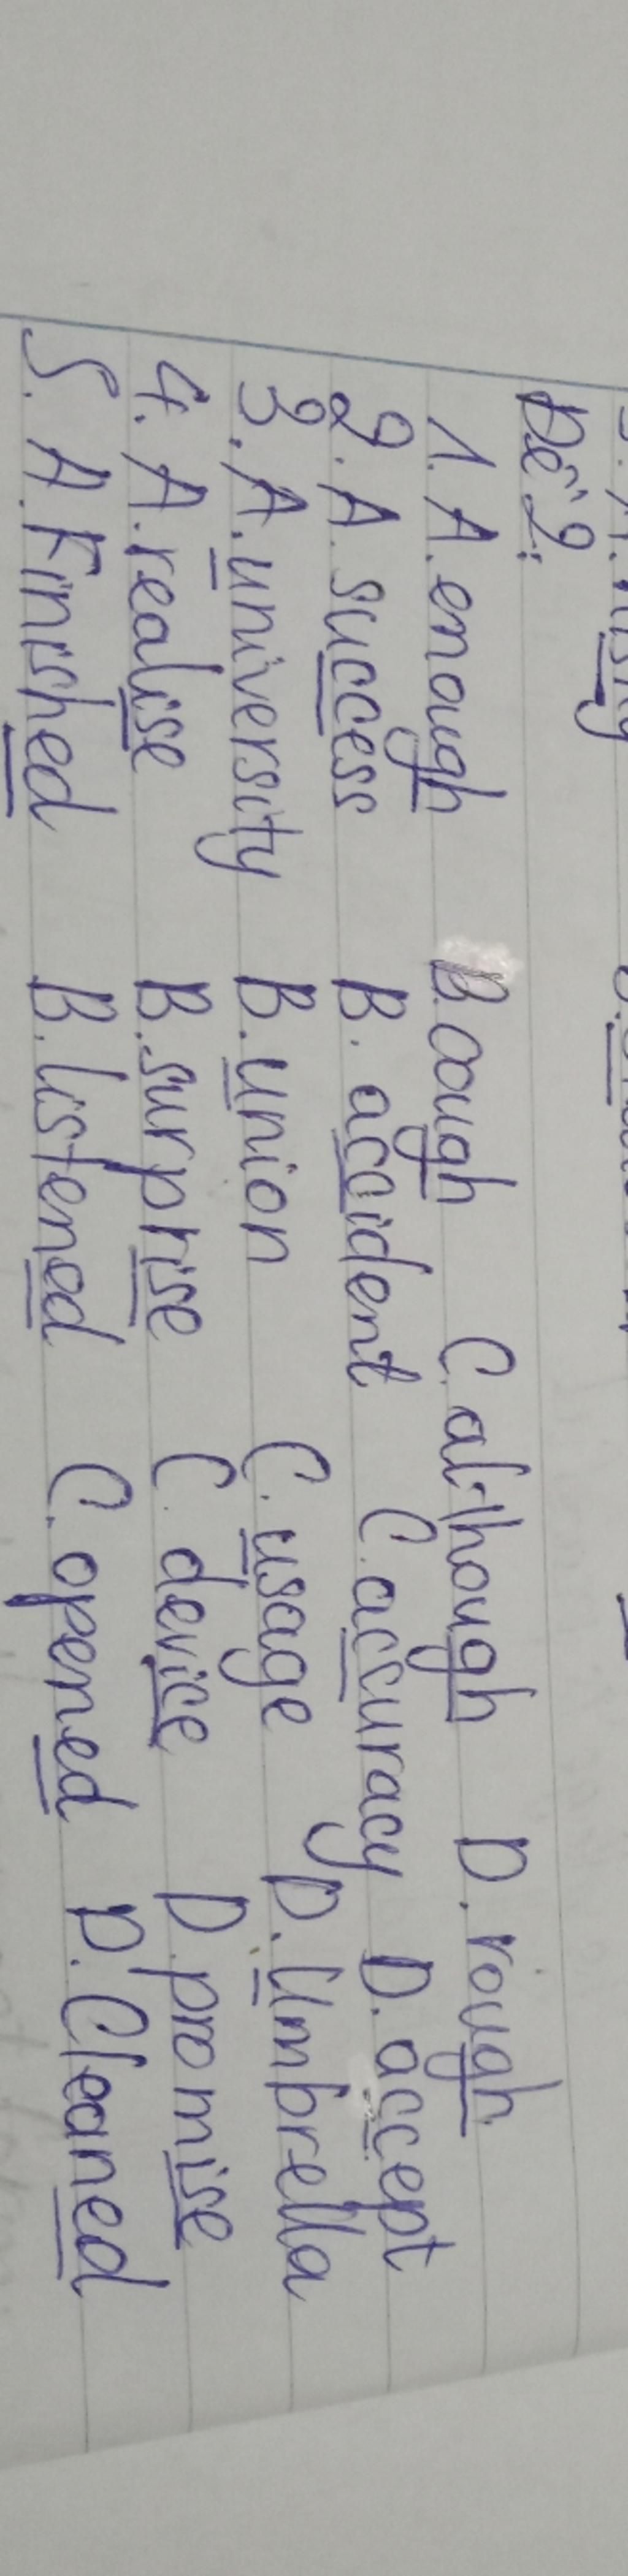 Đề 2:
1. A. enough B. cough C. although D. rough
2. A. success B. accident C. accuracy D. accept
3. A. university B. union C. usage D. Umbrella
4. A. realise B. surprise C. device D. promise
5. A. Finished B. listened C. opened D. Cleaned